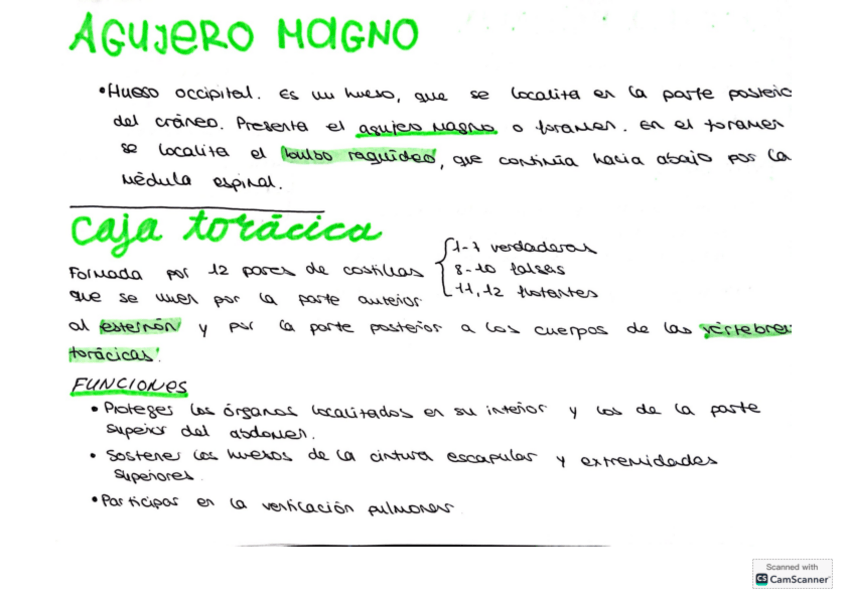 AGUJERO MAGNO
• Hueso occipital. Es un hueso, que se localiza en la parte posterio
del cráneo. Presenta el agujero magno o foramen. En el foramen
se localiza el bulbo raquídeo, que continúa hacia abajo por la
médula espinal.
Caja torácica
Formada por 12 pares de costillas { 1-7 verdaderas
8-10 falsas
11, 12 flotantes
que se unen por la parte anterior
al esternón y por la parte posterior a los cuerpos de las vértebras
torácicas.
FUNCIONES
• Proteger los órganos localizados en su interior y los de la parte
superior del abdomen.
• Sostener los huesos de la cintura escapular y extremidades
superiores.
• Participar en la ventilación pulmonar.
Scanned with
CS CamScanner